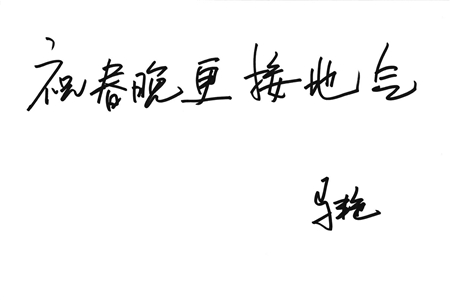 祝春晚更接地气
马艳